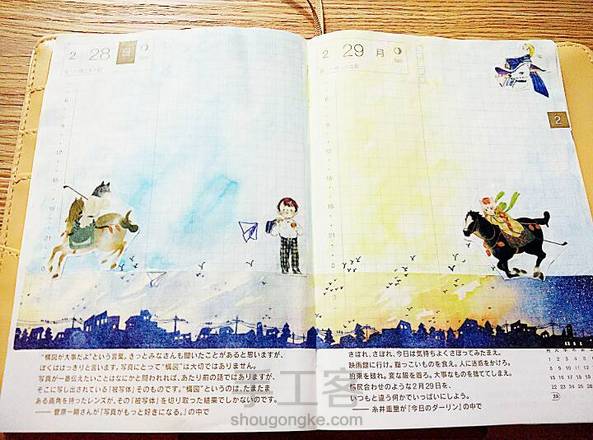 2 28 日
2 29 月
2
"構図が大事だよ"という言葉。きっとみなさんも聞いたことがあると思いますが、
ぼくははっきりと言います。写真にとって"構図"は大切ではありません。
写真が一番伝えたいことはなにかと問われれば、あたり前の話ではありますが、
そこに写し出されている「被写体」そのものです。"構図"というのは、たまたま
ある画角を持ったレンズが、その「被写体」を切り取った結果でしかないのです。
── 菅原一剛さんが『写真がもっと好きになる。』の中で
さぼれ、さぼれ、今日は気持ちよくさぼってみたまえ。
映画館に行け。脂っこいものを食え。人に迷惑をかけろ。
約束を破れ。変な服を着ろ。大事なものを捨ててしまえ。
帳尻合わせのような2月29日を、
いつもと違う何かでいっぱいにしよう。
── 糸井重里が『今日のダーリン』の中で
shougongke.com